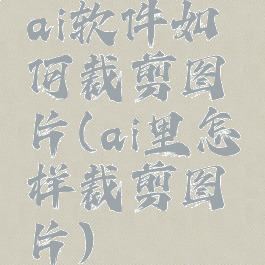 ai软件如
何裁剪图
片(ai里怎
样裁剪图
片)